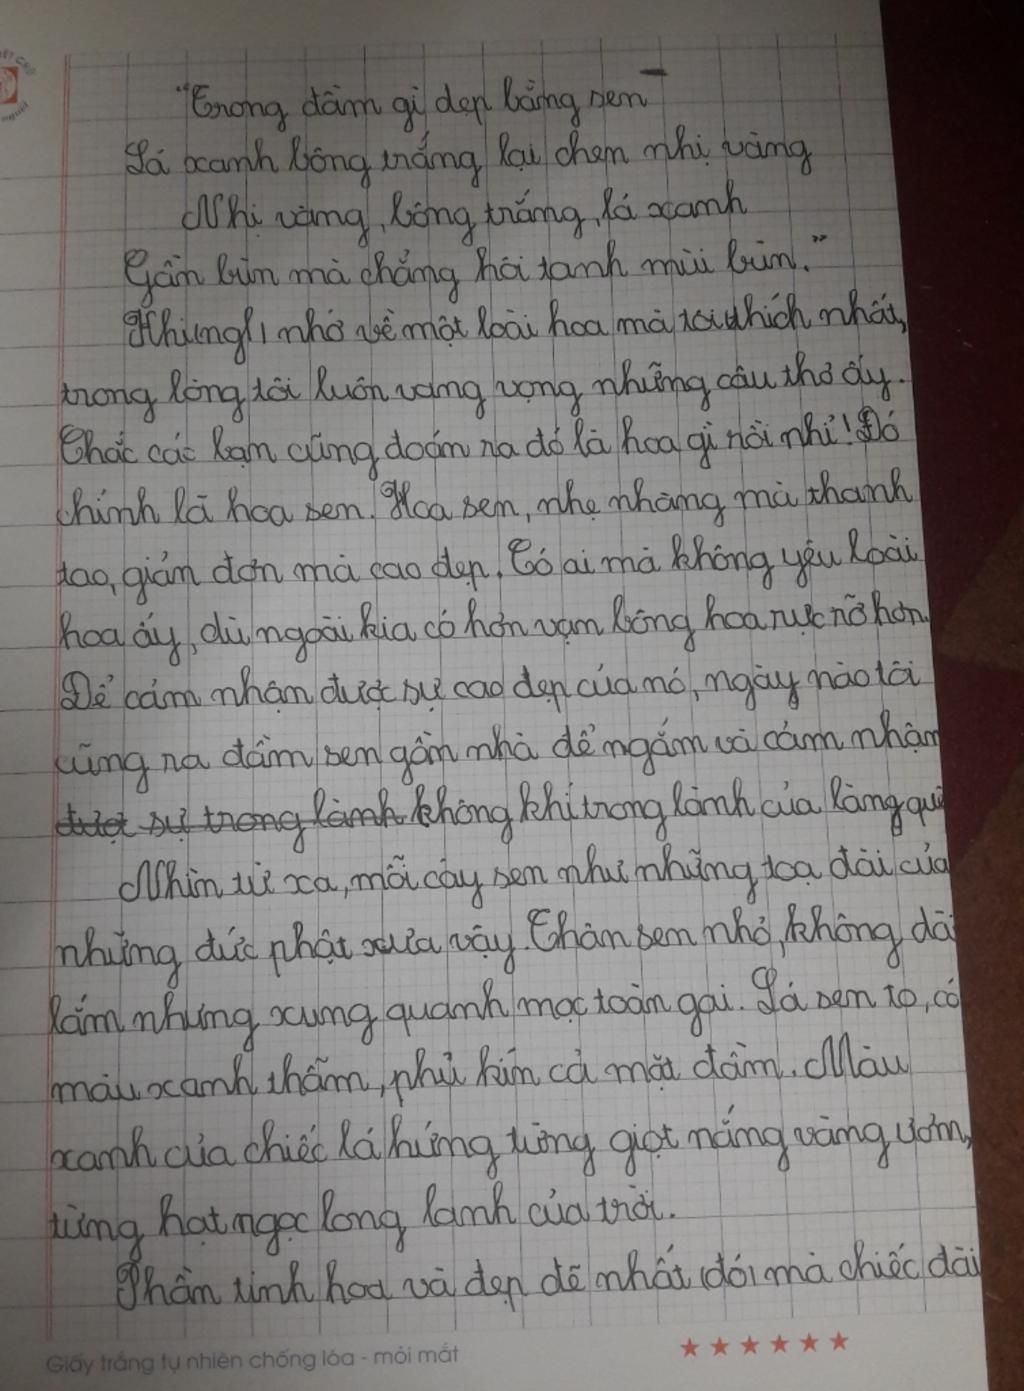 "Trong đầm gì đẹp bằng sen
Lá xanh bông trắng lại chen nhị vàng
Nhị vàng, bông trắng, lá xanh
Gần bùn mà chẳng hôi tanh mùi bùn."
nhớ về một loài hoa mà tôi thích nhất,
trong lòng tôi luôn vang vọng những câu thơ ấy.
Chắc các bạn cũng đoán ra đó là hoa gì rồi nhỉ! Đó
chính là hoa sen. Hoa sen, nhẹ nhàng mà thanh
tao, giản đơn mà cao đẹp. Có ai mà không yêu loài
hoa ấy, dù ngoài kia có hơn vạn bông hoa rực rỡ hơn.
Để cảm nhận được sự cao đẹp của nó, ngày nào tôi
cũng ra đầm sen gần nhà để ngắm và cảm nhận
được sự trong lành không khí trong lành của làng quê
Nhìn từ xa, mỗi cây sen như những toạ đài của
những đức phật xưa vậy. Thân sen nhỏ, không dài
lắm nhưng xung quanh mọc toàn gai. Lá sen to, có
màu xanh thẫm, phủ kín cả mặt đầm. Màu
xanh của chiếc lá hứng từng giọt nắng vàng ươm,
từng hạt ngọc long lanh của trời.
Phần tinh hoa và đẹp đẽ nhất đó mà chiếc đài
Giấy trắng tự nhiên chống lóa - mỏi mắt